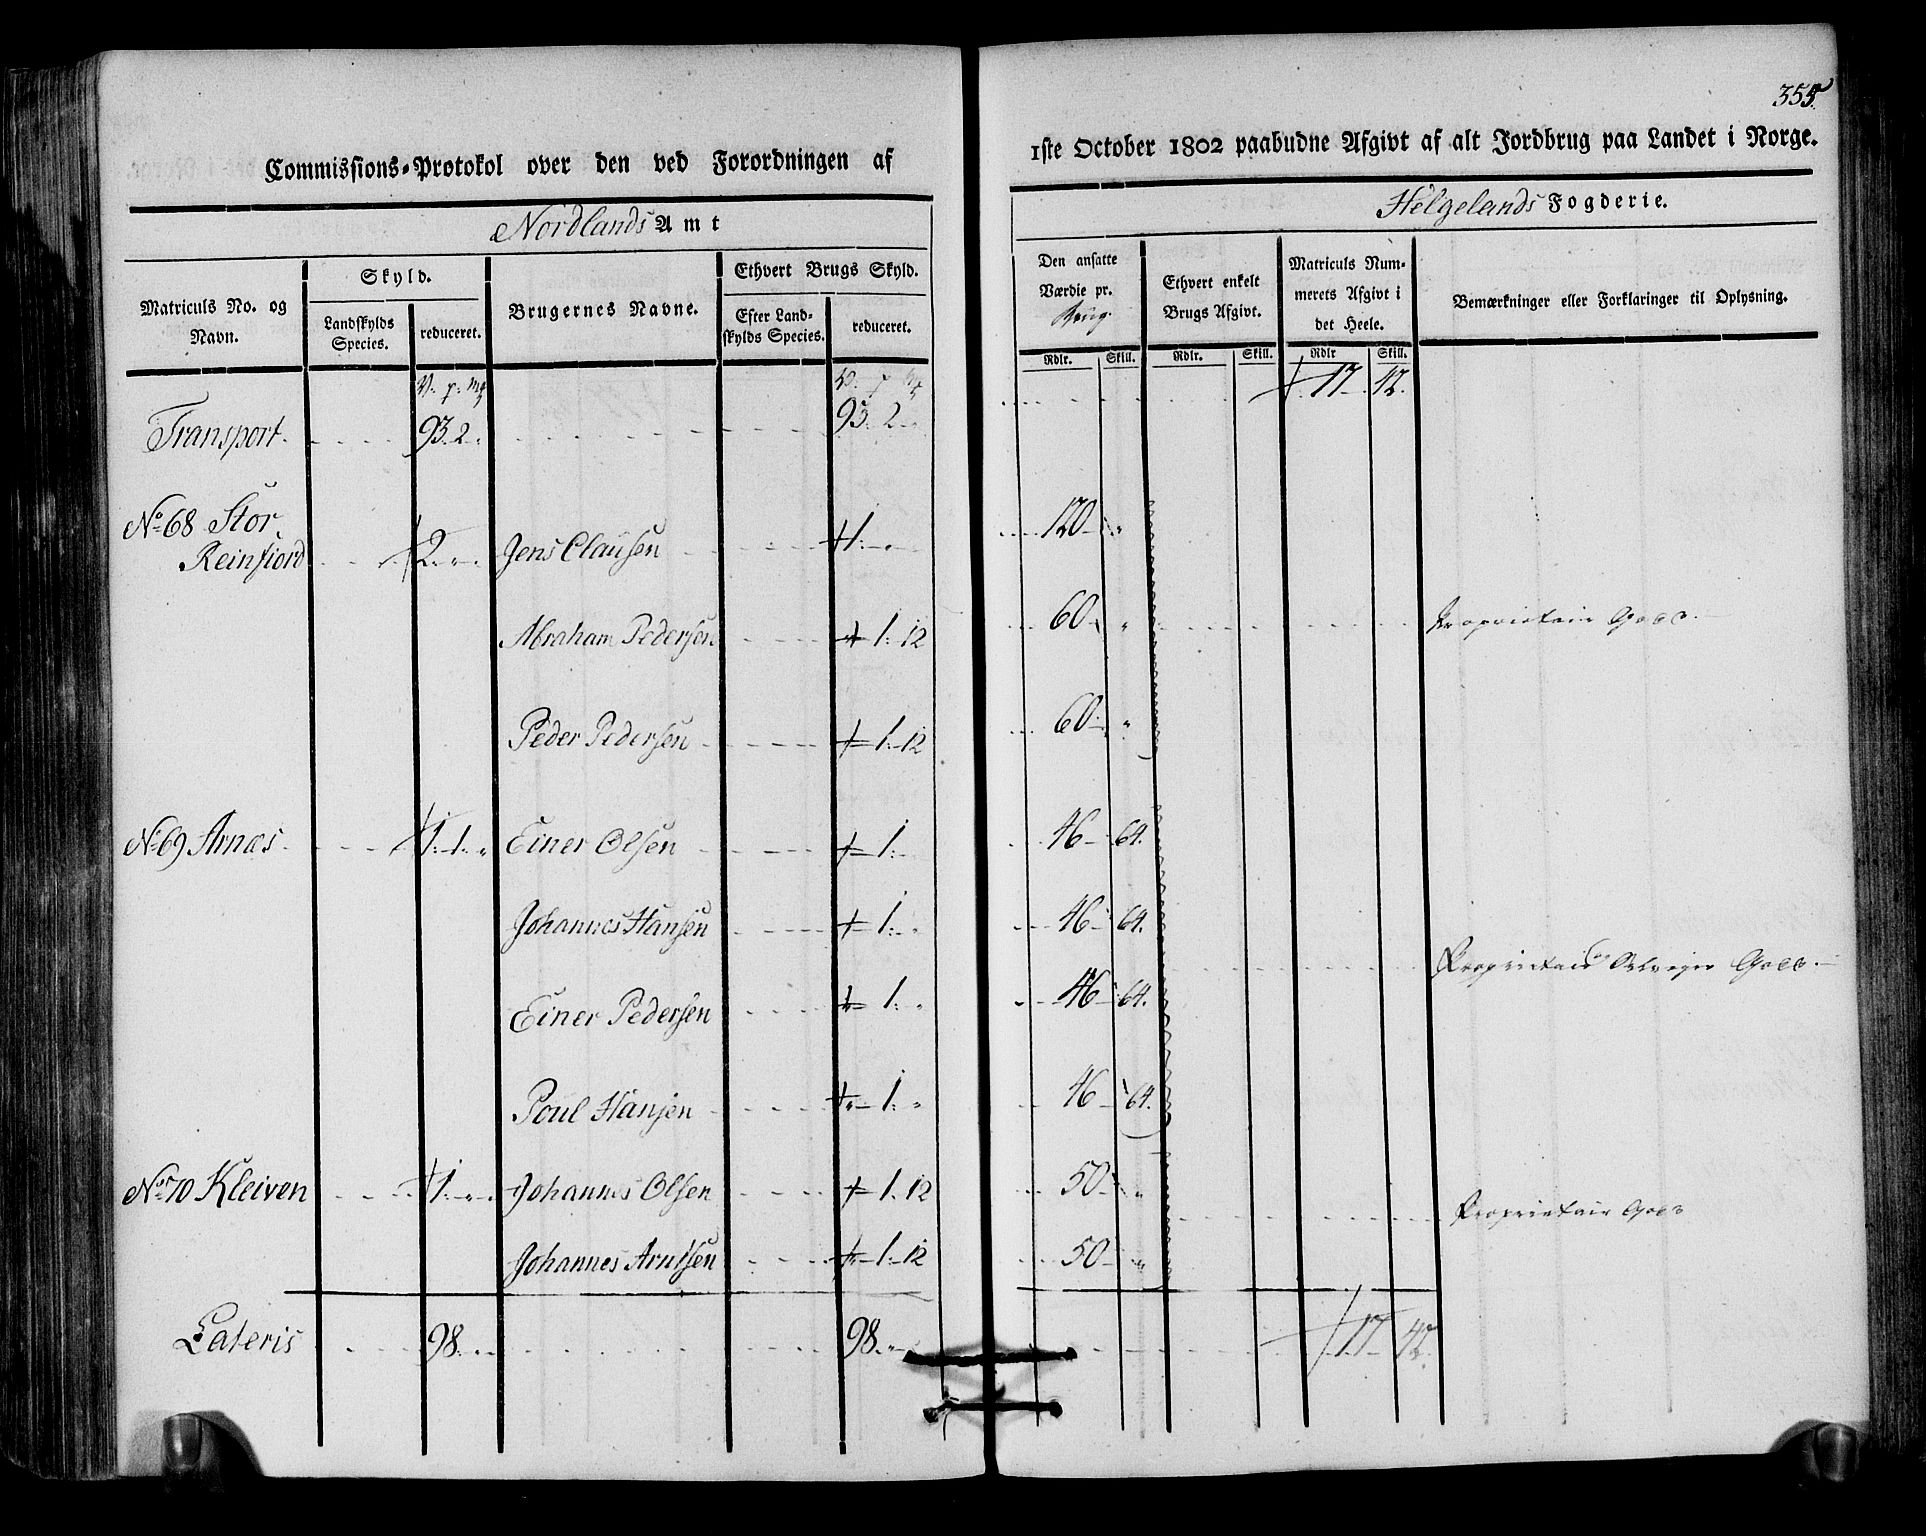 355.
Commissions-Protokol over den ved Forordningen af
1ste October 1802 paabudne Afgivt af alt Jordbrug paa Landet i Norge.
Nordlands Amt
Helgelands Fogderie.
Matriculs No. og Navn.
Skyld.
Landskylds Species.
reduceret.
Brugernes Navne.
Ethvert Brugs Skyld.
Efter Landskylds Species.
reduceret.
Den ansatte Værdie pr. Brug.
Rdlr. Skill.
Ethvert enkelt Brugs Afgivt.
Rdlr. Skill.
Matriculs Nummerets Afgivt i det Heele.
Rdlr Skill.
Bemærkninger eller Forklaringer til Oplysning.
Transport. 93. 2. 93. 2. 17. 42.
No 68 Stor Reinfiord 2. " " Jens Clausen 1. " 120 "
Abraham Pedersen 1. 12 60 " Proprietair Gods.
Peder Pedersen 1. 12 60 "
No 69 Arnæs 1. 1. " Einer Olsen 1. 46 64.
Johannes Hansen 1. " 46 64.
Einer Pedersen 1. " 46 64. Proprietair Gods.
Poul Hansen 1. " 46 64.
No 70 Kleiven 1. " " Johannes Olsen 1. 12 50 "
Johannes Arntsen 1. 12 50 " Proprietair Gods
Lateris 98. " 98. " 17 42.